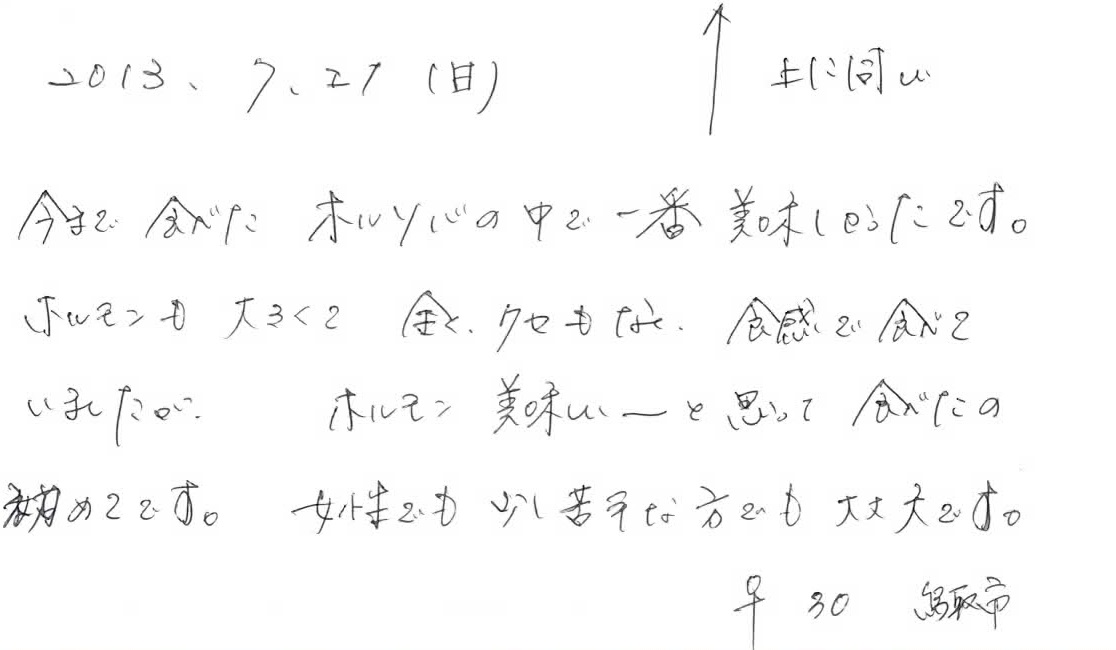 2013、7、21（日） 上に同い
今まで食べた ホルソバの中で一番美味しかったです。
ホルモンも大きくて 全く、クセもなく、食感で食べて
いましたが、 ホルモン美味しいーと思って食べたの
初めてです。 女性でも少し苦手な方でも大丈夫です。
♀ 30 鳥取市